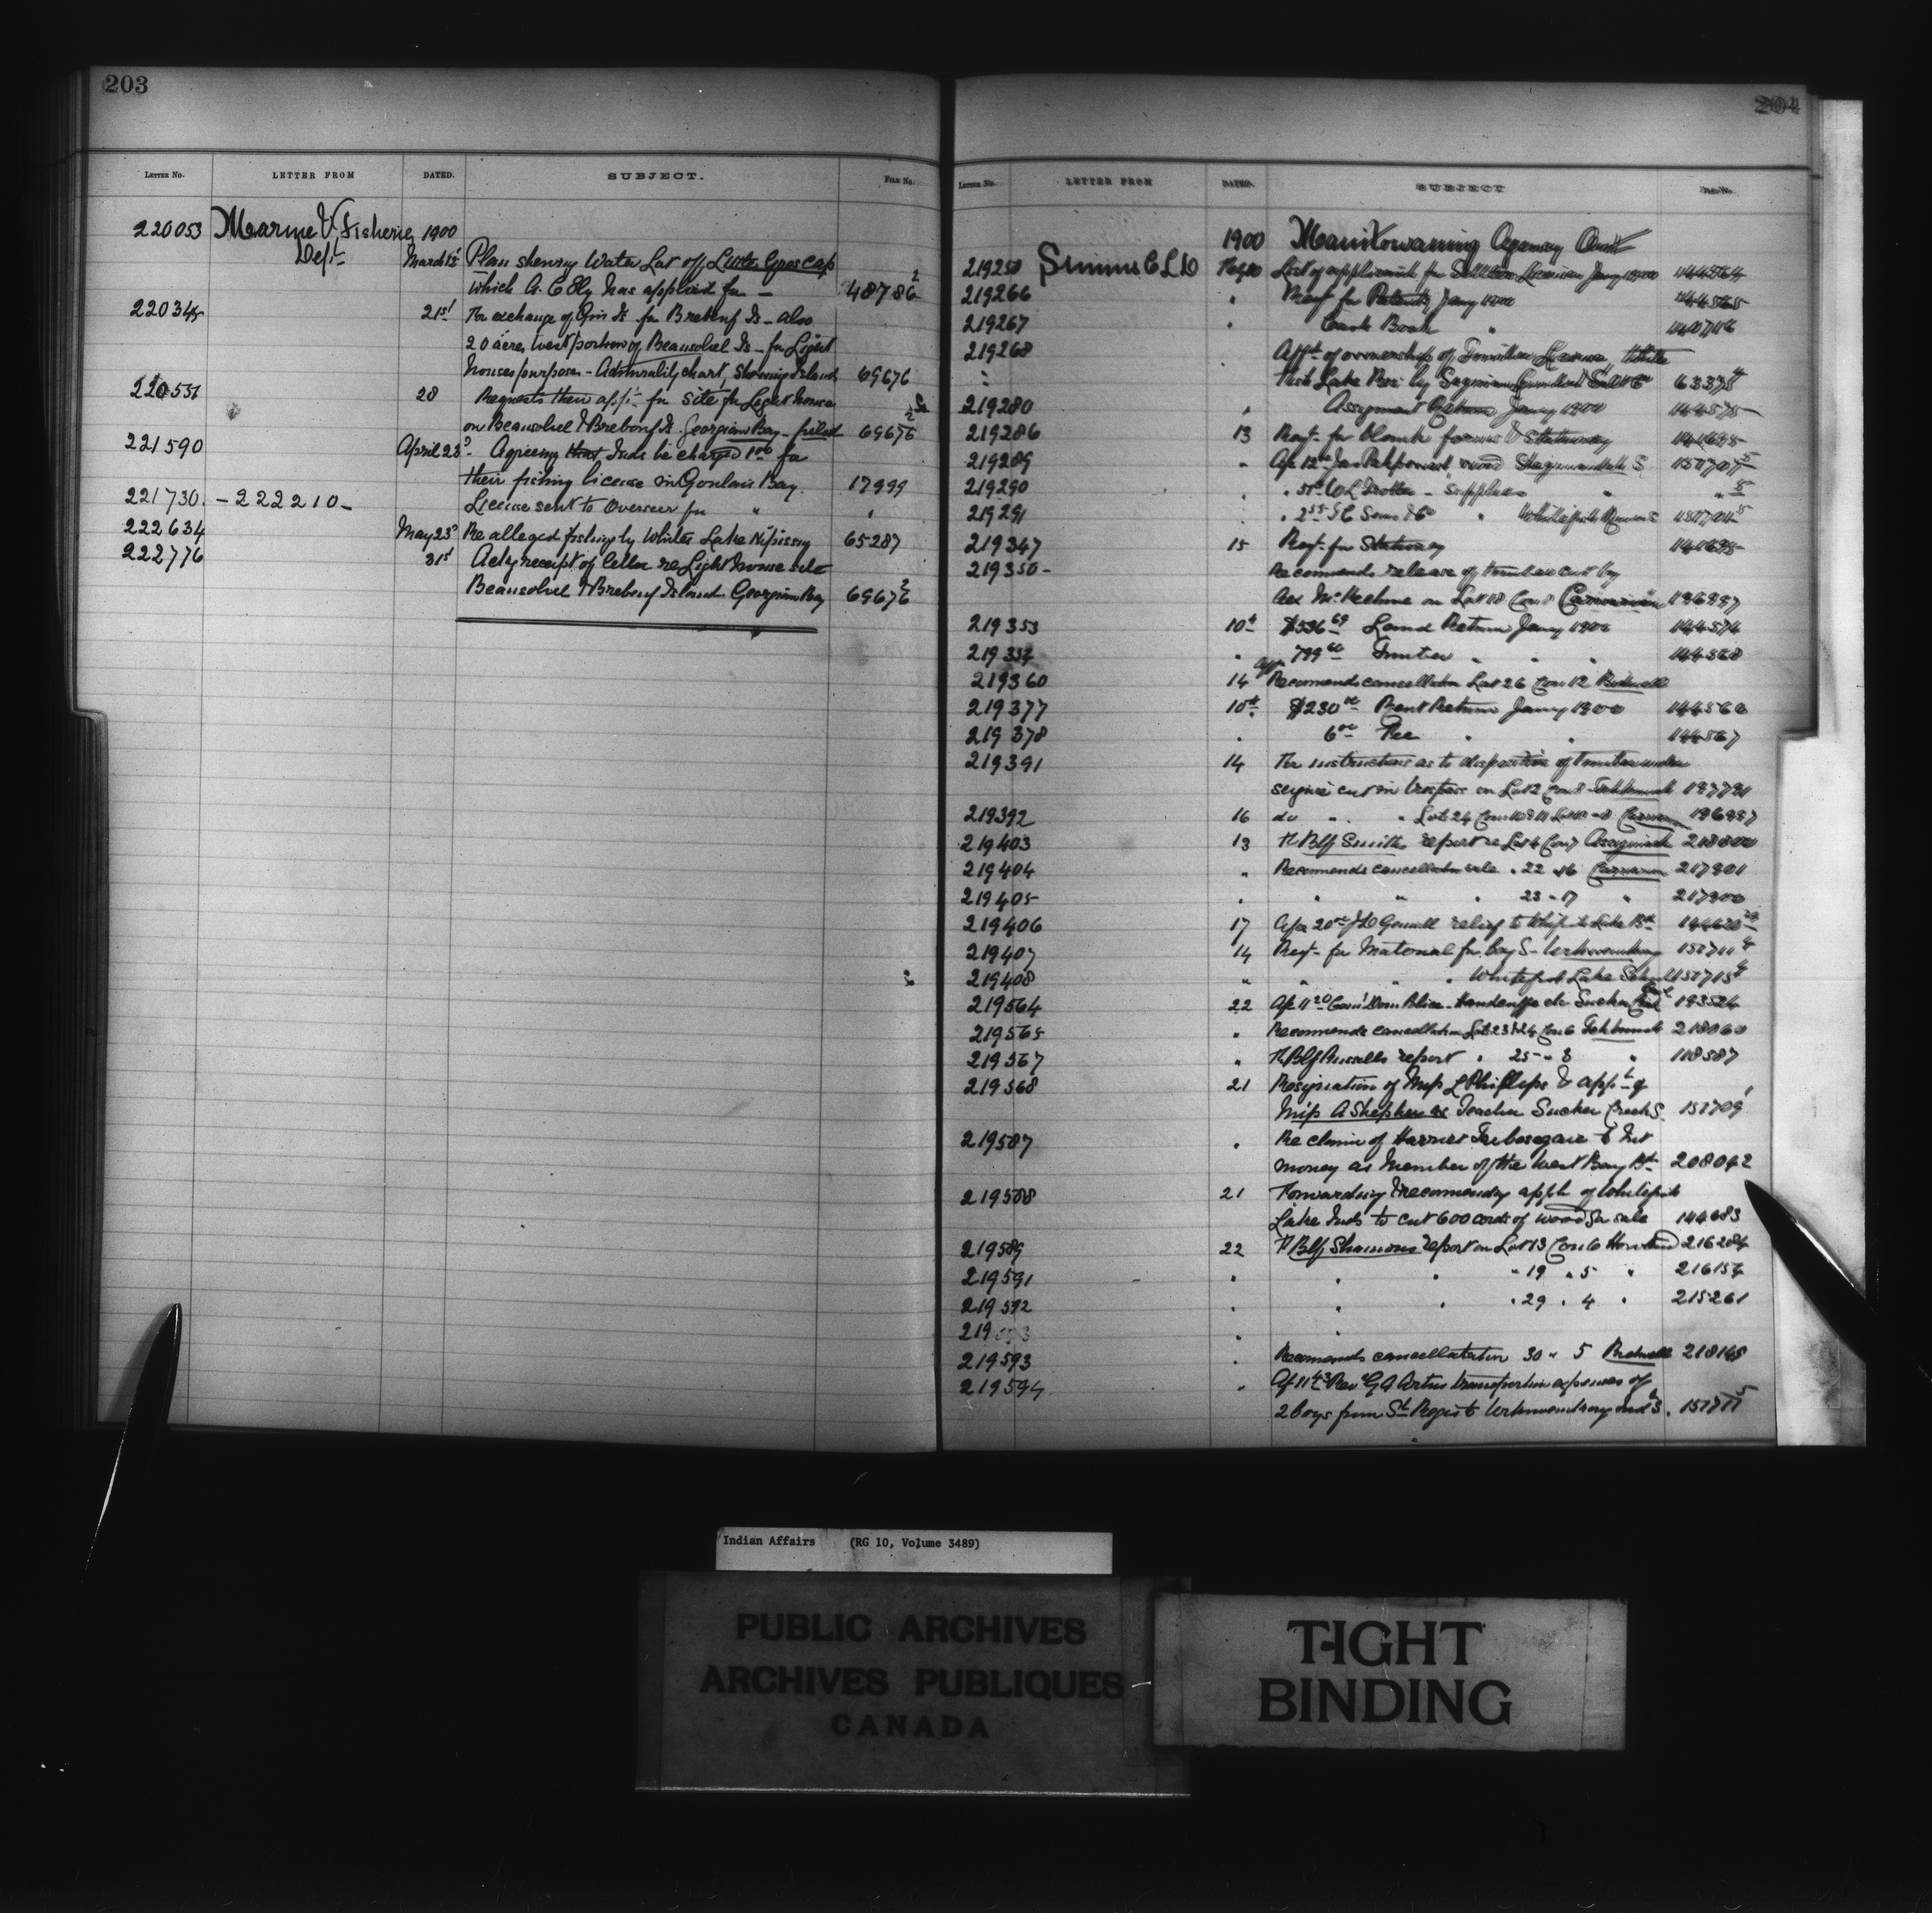 203
LETTER No. LETTER FROM DATED. SUBJECT. FILE No.
220053 Marine & Fisheries 1900
Dept March 15 Plan shewing Water Lot off Little Gros Cap
which G. C Ely has applied for — 48786 2
220345 21st For exchange of Gin Is. for Brebeuf Is — also
20 acres West portion of Beausoleil Is — for Light
houses purposes — Admiralty chart, showing Islands 69676
220531 28 Requests their appn for site for Lighthouse
on Beausoleil & Brebeuf Is. Georgian Bay — filed 69676 2
221590 April 23d Agreeing that Inds be charged 1.00 for
their fishing license in Goulais Bay. 17999
221730. — 222210 — License sent to Overseer for " "
222634 May 23d Re alleged fishing by Whites Lake Nipissing 65287
222776 31st Ackg receipt of letter re Lighthouse site
Beausoleil & Brebeuf Island Georgian Bay 69676 2
204
LETTER No. LETTER FROM DATED. SUBJECT FILE No.
1900 Manitowaning Agency Ont
219250 Simms C L D Feby 10 List of applicants for Settlers Licenses Jany 1900 144564
219266 " Reqt for Patents Jany 1900 144565
219267 " Cash Book "
219268 " Afft of ownership of Timber License, White
Fish Lake Res. by Saginaw Lumber & Salt Co 63375 4
219280 " Assignment Returns Jany 1900 144575
219286 13 Reqt for blank forms & Stationery
219289 " Ap 12 Jas Pahpewash, wood Sheguiandah S
219290 " " W L Trotter — supplies " "
219291 " " " Whitefish River S
219347 15 Reqt for Stationery
219350 — Recommends release of timber cut by
on Lot 18 Con 8 Carnarvon 196997
219353 10th $536.69 Land Return Jany 1900 144574
219354 " 799.60 Timber " " " 144568
219360 14 Recommends cancellation Lot 26 Con 12 Bidwell
219377 10th $230.00 Rent Return Jany 1900 144566
219378 " 6.00 Fee " " 144567
219391 14 For instructions as to disposition of timber under
seizure cut in trespass on Lot 2 Con 8 Tehkummah 197791
219392 16 do " " Lot 24 Carnarvon 196997
219403 13 Fr Blf Smith report re Lot 4 Con 7 Assiginack 218800
219404 " Recommends cancellation sale " 22 " 16 Carnarvon 217901
219405 " " " " 23 " 17 " 217900
219406 17 relief to Whitefish Lake Bd 144620
219407 14 Reqt for Material for Boy S — Wikwemikong 157711 4
219408 " " " Whitefish Lake School 157715 4
219564 22 Dom Police. Handcuffs etc Sucker Creek 193524
219565 " Recommends cancellation Lots 23 & 24 Con 6 Tehkummah 218060
219567 " Fr Blf Russells report " 25 " 8 " 118587
219568 21 Resignation of Miss L Phillips & appt of
Miss A Shepherd as Teacher Sucker Creek S. 157709 1
219587 " Re claim of Harriet to Int
money as Member of the West Bay Bd 208042
219588 21 Forwarding & recommending appln of Whitefish
Lake Inds to cut 600 cords of wood for sale 144683
219589 22 Fr Blf Shannons report on Lot 13 Con 6 Howland 216204
219591 " " " " 19 " 5 " 216154
219592 " " " " 29 " 4 " 215261
219593 " "
219593 " Recommends cancellation 30 " 5 Bidwell 218165
219594 " Rev G A Artus transportion expenses of
2 boys from St Regis to Wikwemikong Ind S. 157717 5
Indian Affairs (RG 10, Volume 3489)
PUBLIC ARCHIVES
ARCHIVES PUBLIQUES
CANADA
TIGHT
BINDING